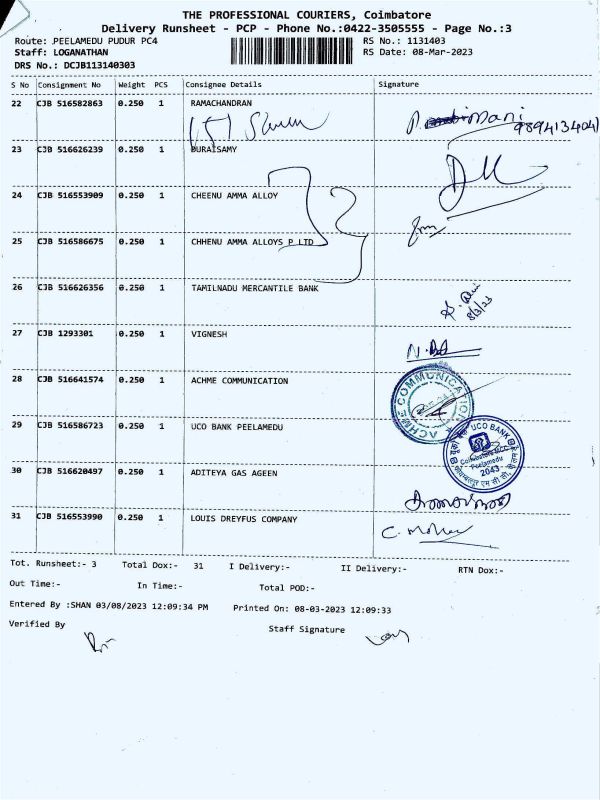 THE PROFESSIONAL COURIERS, Coimbatore
Delivery Runsheet - PCP - Phone No.:0422-3505555 - Page No.:3
Route: PEELAMEDU PUDUR PC4 RS No.: 1131403
Staff: LOGANATHAN RS Date: 08-Mar-2023
DRS No.: DCJB113140303
S No Consignment No Weight PCS Consignee Details Signature
22 CJB 516582863 0.250 1 RAMACHANDRAN
9894134041
23 CJB 516626239 0.250 1 DURAISAMY
24 CJB 516553909 0.250 1 CHEENU AMMA ALLOY
25 CJB 516586675 0.250 1 CHHENU AMMA ALLOYS P LTD
26 CJB 516626356 0.250 1 TAMILNADU MERCANTILE BANK
8/3/23
27 CJB 1293301 0.250 1 VIGNESH
28 CJB 516641574 0.250 1 ACHME COMMUNICATION
ACHME COMMUNICATION
29 CJB 516586723 0.250 1 UCO BANK PEELAMEDU
UCO BANK
Peelamedu
2043
30 CJB 516620497 0.250 1 ADITEYA GAS AGEEN
31 CJB 516553990 0.250 1 LOUIS DREYFUS COMPANY
Tot. Runsheet:- 3 Total Dox:- 31 I Delivery:- II Delivery:- RTN Dox:-
Out Time:- In Time:- Total POD:-
Entered By :SHAN 03/08/2023 12:09:34 PM Printed On: 08-03-2023 12:09:33
Verified By Staff Signature